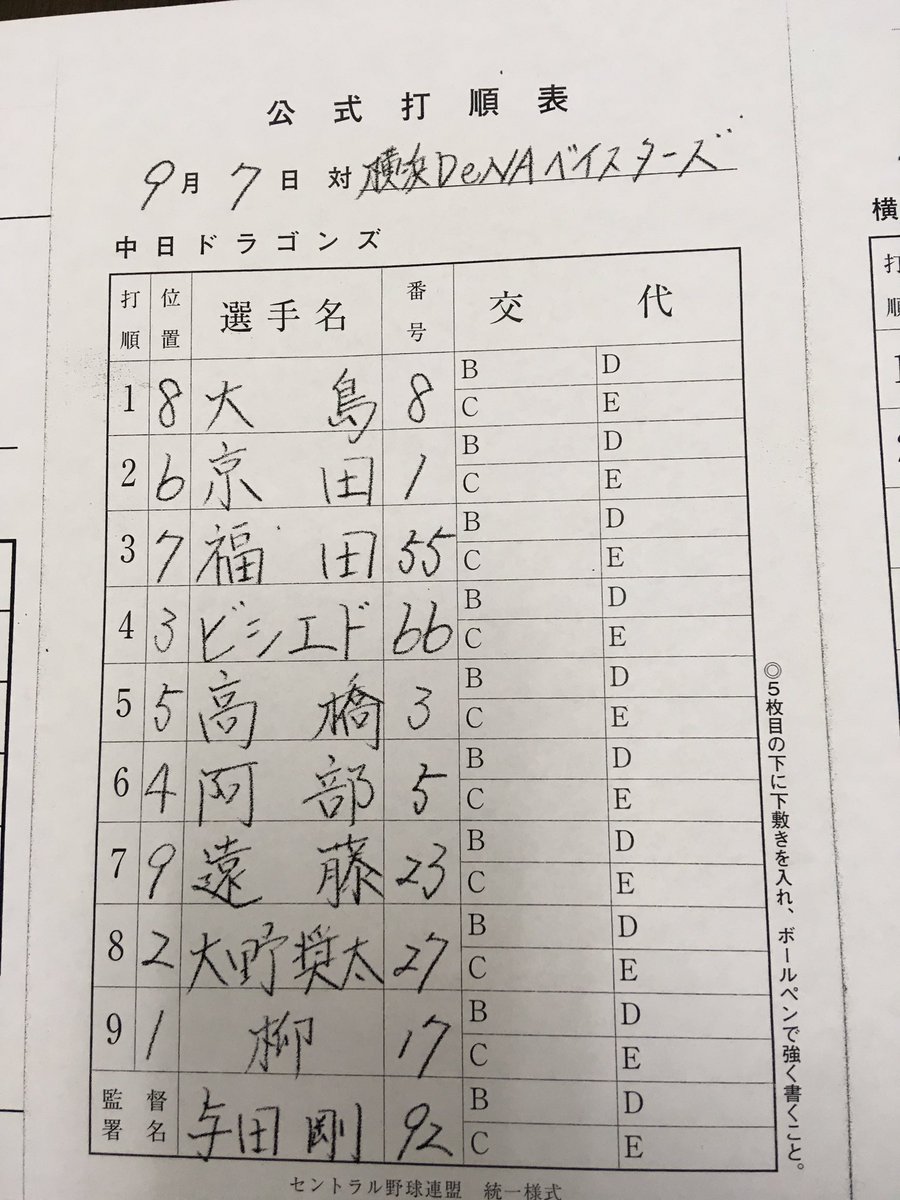 公式打順表
9月7日 対 横浜DeNAベイスターズ
中日ドラゴンズ
打順 位置 選手名 番号 交代
1 8 大島 8 B D
C E
2 6 京田 1 B D
C E
3 7 福田 55 B D
C E
4 3 ビシエド 66 B D
C E
5 5 高橋 3 B D
C E
6 4 阿部 5 B D
C E
7 9 遠藤 23 B D
C E
8 2 大野奨太 27 B D
C E
9 1 柳 17 B D
C E
監督署名 与田剛 92 B D
C E
◎5枚目の下に下敷きを入れ、ボールペンで強く書くこと。
セントラル野球連盟 統一様式
横
打
順